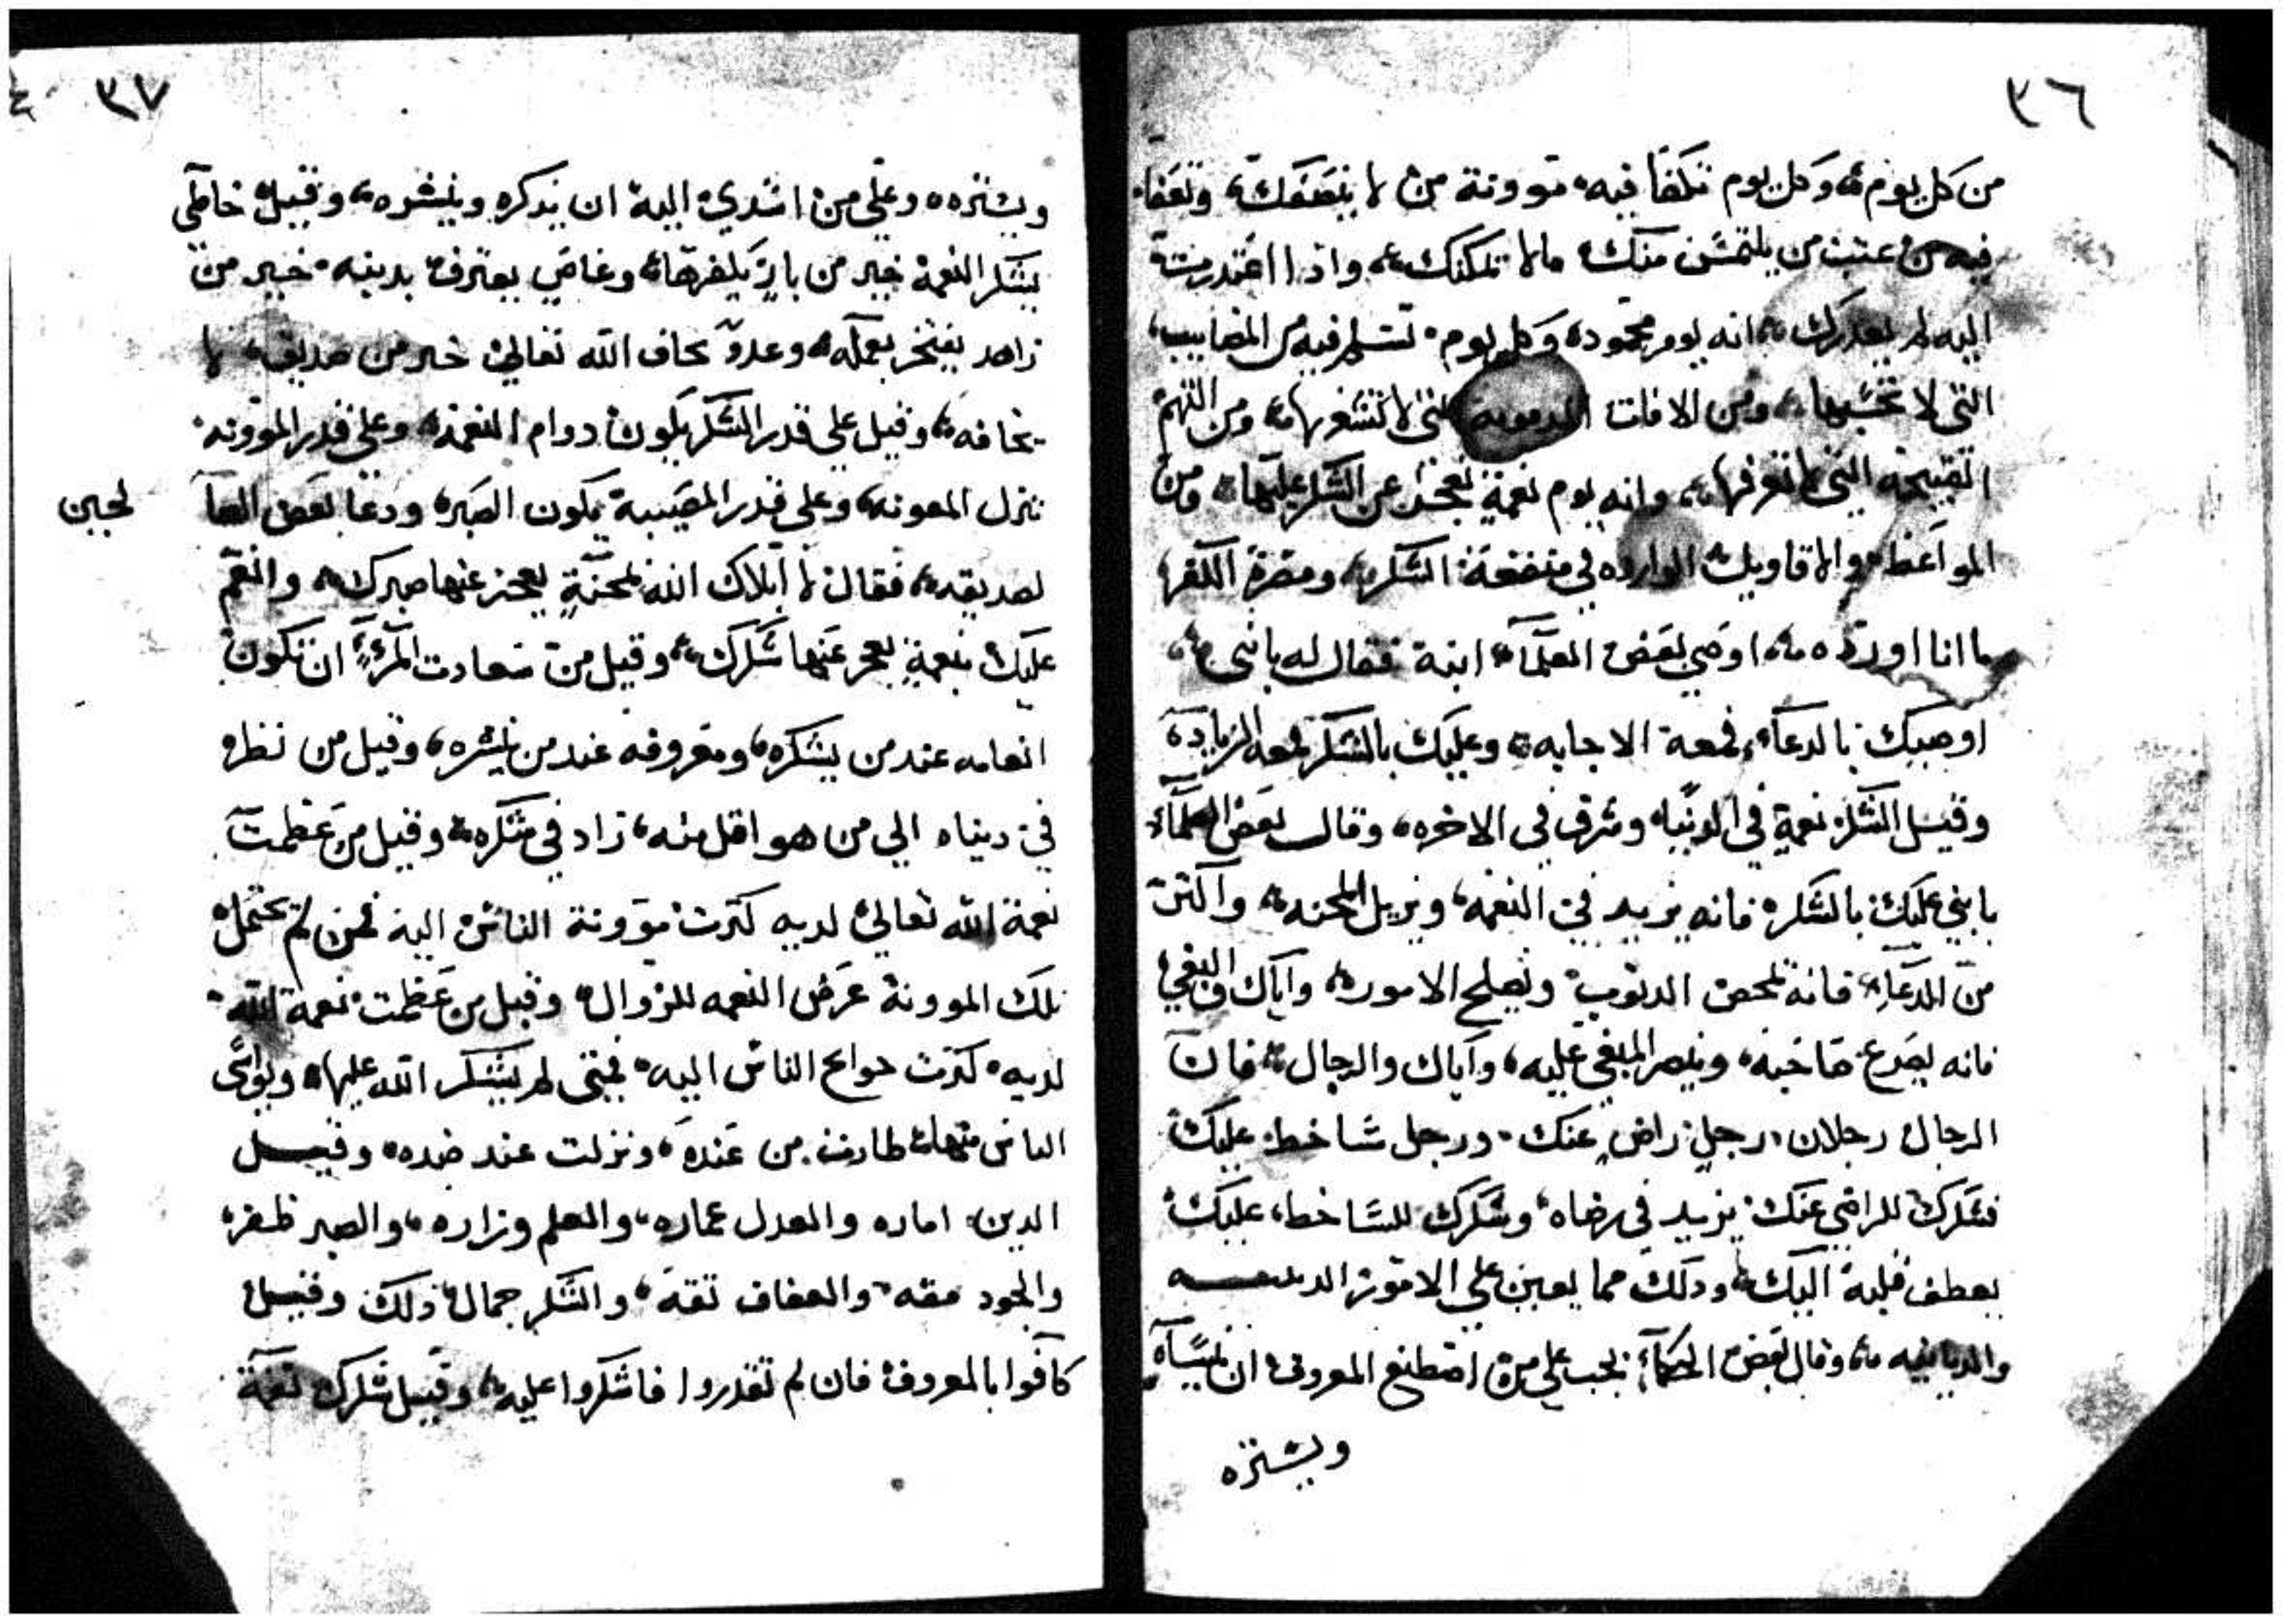 ٣٦
من كل يوم، وكل يوم تكفا فيه موونة من لا ينصفك، وتعفا
فيه من عتب من يلتمس منك ما لا يمكنك، واذا اعتدرت
اليه لم يعدرك، انه يوم محمود، وكل يوم تسلم فيه من المصايب
التي لا تحتسبها، ومن الافات المدمومة التي لا تشعر بها، ومن التهم
القبيحه التي لا تعرفها، وانه يوم نعمة تعجز عن الشكر عليها، ومن
المواعظ والاقاويل الوارده في منفعة الشكر، ومضرة الكفر
ما انا اورده، اوصي بعض العلمآء ابنه فقال له يابني
اوصيك بالدعآء فمعه الاجابه، وعليك بالشكر فمعه الزيادة
وقيل الشكر نعمة في الدنيا، وشرف في الاخره، وقال بعض العلمآء
يابني عليك بالشكر فانه يزيد في النعمه، ويزيل المحنه، واكثر
من الدعآء، فانه يمحص الدنوب ويصلح الامور، واياك والبغي
فانه يصرع صاحبه، وينصر المبغي عليه، واياك والرجال، فان
الرجال رجلان، رجل راض عنك، ورجل ساخط عليك
فشكرك للراضي عنك يزيد في رضاه، وشكرك للساخط عليك
يعطف قلبه اليك، ودلك مما يعين علي الامور الدينيه
والدنيايه، وقال بعض الحكمآء يجب علي من اصطنع المعروف ان ينساه
ويستره
٣٧
ويستره، وعلي من اسدي اليه ان يذكره وينشره، وقيل خاطي
يشكر النعمة خير من بار يكفرها، وعاصي يعترف بدينه خير من
زاهد يفتخر بعمله، وعدو يخاف الله تعالي خير من صديق لا
يخافه، وقيل علي قدر الشكر يكون دوام النعمة، وعلي قدر الموونه
تنزل المعونه، وعلي قدر المصيبة يكون الصبر، ودعا بعض العا
لحين
لصديقه، فقال لا ابلاك الله بمحنة يعجز عنها صبرك، وانعم
عليك بنعمة يعجز عنها شكرك، وقيل من سعادت المرء ان تكون
انعامه عند من يشكره، ومعروفه عند من ينشره، وقيل من نظر
في دنياه الي من هو اقل منه، زاد في شكره، وقيل من عظمت
نعمة الله تعالي لديه كثرت موونة الناس اليه فمن لم يحتمل
تلك الموونة عرض النعمه للزوال، وقيل من عظمت نعمة الله
لديه كثرت حوايج الناس اليه فمتى لم يشكر الله عليها، ويواسي
الناس منها، طارت من عنده، ونزلت عند ضده، وقيل
الدين اماره والعدل عماره، والعلم وزاره، والصبر ظفر
والجود مقه والعفاف ثقة، والشكر جمال ذلك وقيل
كآفوا بالمعروف فان لم تقدروا فاشكروا عليه، وقيل شكرك نعمة